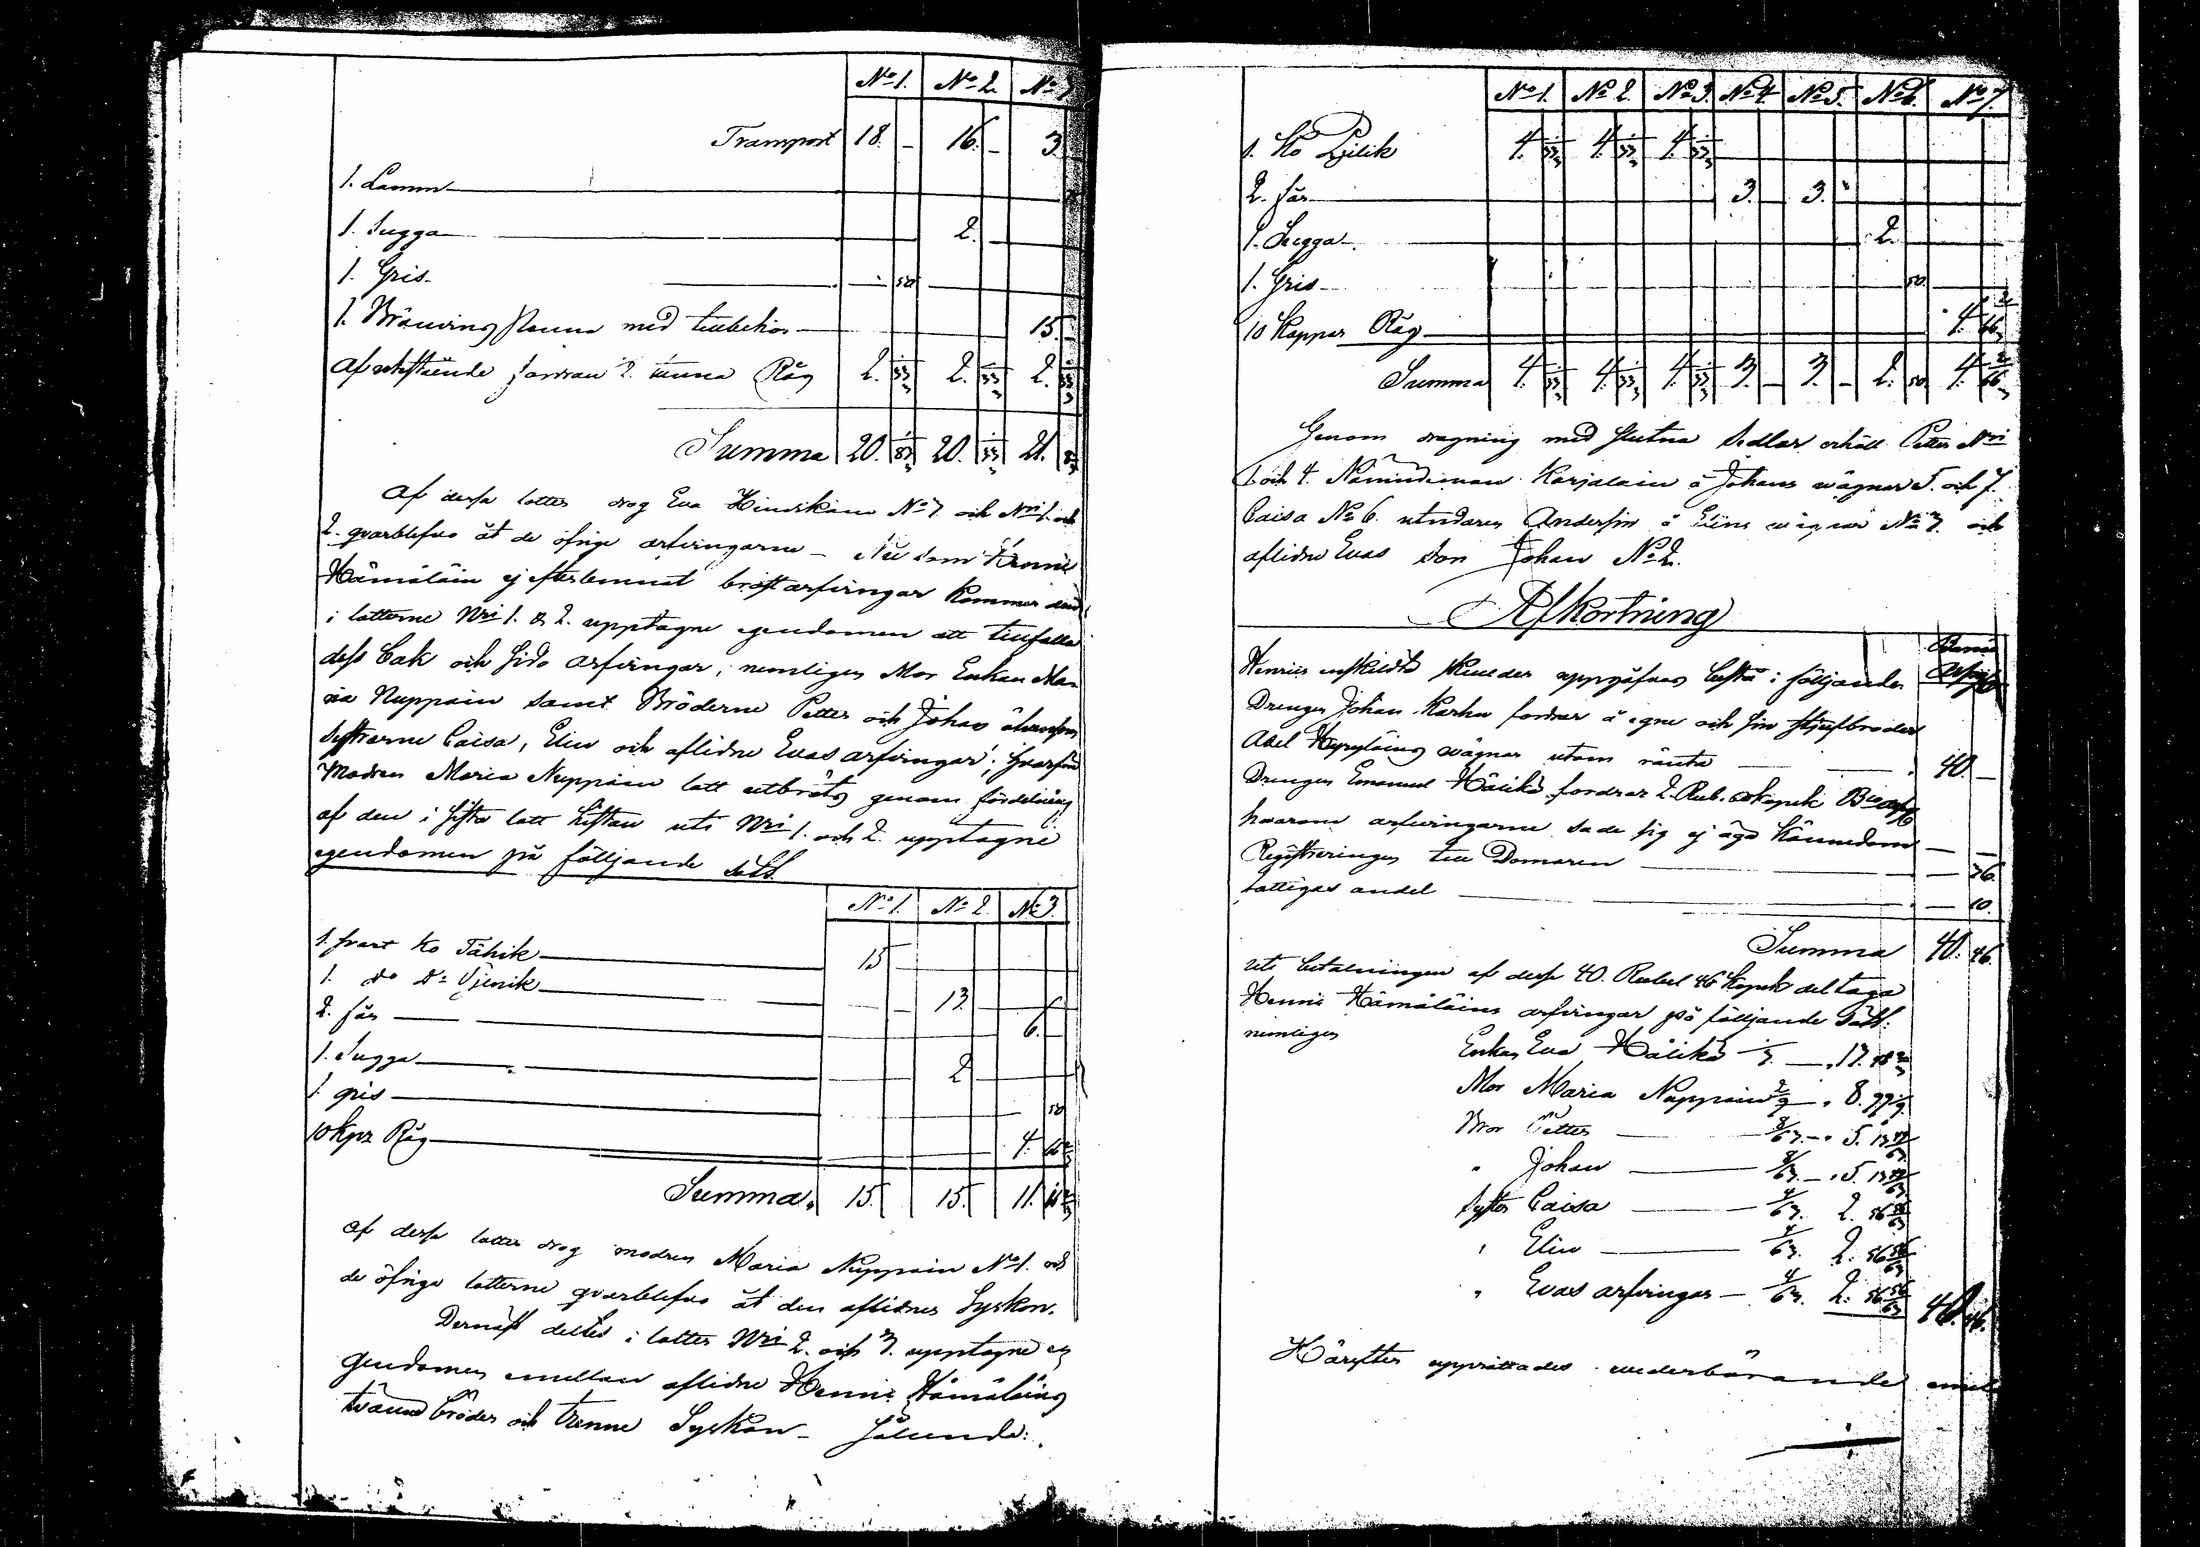 No 1. No 2. No 3
Transport 18. – 16. – 3. –
1. Lamm
1. Sugga 2. –
1. Gris – 50
1. Bränvins Panna med tillbehör 15. –
Af utestående fordran 2. tunna Råg 2. 33 1/3 2. 33 1/3 2. 33 1/3
Summa 20. 83 1/3 20. 33 1/3 21.
Af dessa lotter drog Eva Hindrikinn No 3 och Nri 1. och
2. qvarblefvo åt de öfrige arfvingarne – Nu som Henric
Hämäläin ej efterlemnat bröstarfvingar kommer den
i lotterne Nri 1. & 2. upptagne egendomen att tillfalla
dess Bak och Sido arfvingar, nemligen Mor Enkan Ma-
ria Nuppoin samt Bröderne Petter och Johan
Systrarne Caisa, Elin och aflidne Evas arfvingar; hvarför
Modren Maria Nuppoin lott utbröts genom fördelning
af den i sista lott listan uti Nri 1. och 2. upptagne
egendomen på följande sätt.
No 1. No 2. No 3.
1. svart Ko Tähik 15
1. do do Vjenik 13.
2. får 6.
1. Sugga 2
1 gris 50
10 kpr Råg 4. 66 2/3
Summa. 15. 15. 11. 16 2/3
af dessa lotter drog modren Maria Nuppoin No 1. och
de öfrige lotterne qvarblefvo åt den aflidnes Syskon.
Dernäst deltes i lotter Nri 2. och 3. upptagne e-
gendomen emellan aflidne Henric Hämäläins
tvänne bröder och trenne Syskon – sålunda:
No 1. No 2. No 3. No 4. No 5. No 6. No 7.
1. Ko 4. 33 1/3 4. 33 1/3 4. 33 1/3
2. får 3. – 3. –
1. Sugga 2.
1. Gris 50
10 Kappar Råg 4. 66 2/3
Summa 4. 33 1/3 4. 33 1/3 4. 33 1/3 3. – 3. – 2. 50 4. 66 2/3
Genom dragning med slutna Sedlar erhöll Petter Nri
1 och 4. Nämndeman Karjalain å Johans wägnar 5. och 7.
Caisa No 6. utridaren Andersin å Elins wägnar No 3. och
aflidne Evas Son Johan No 2.
Afkortning
Henrics enskildta skulder uppgåfvos bestå i följande
Drengen Johan Karhu fordrar å egne och sin styfbroder
Abel wägnar utom ränta 40. –
Drengen Emanuel Häliko fordrar 2. Rub. kopek
hvarom arfvingarne sade sig ej äga kännedom – –
Registreringen till Domaren – 36.
fattigas andel – 10.
Summa 40. 46.
uti betalningen af dessa 40. Rubel 46 kopek deltaga
Henric Hämäläins arfvingar på följande sätt:
nemligen
Enkan Eva Häliko 1/3 – 13. 48 2/3
Mor Maria Nuppoin 2/9 8. 99 1/9
Bror Petter 8/63 – 5. 13
" Johan 8/63 – 5. 13
Syster Caisa 4/63. 2. 56 56/63
" Elin 4/63. 2. 56 56/63
" Evas arfvingar – 4/63. 2. 56 56/63 40. 46.
Härefter upprättades wederbörande